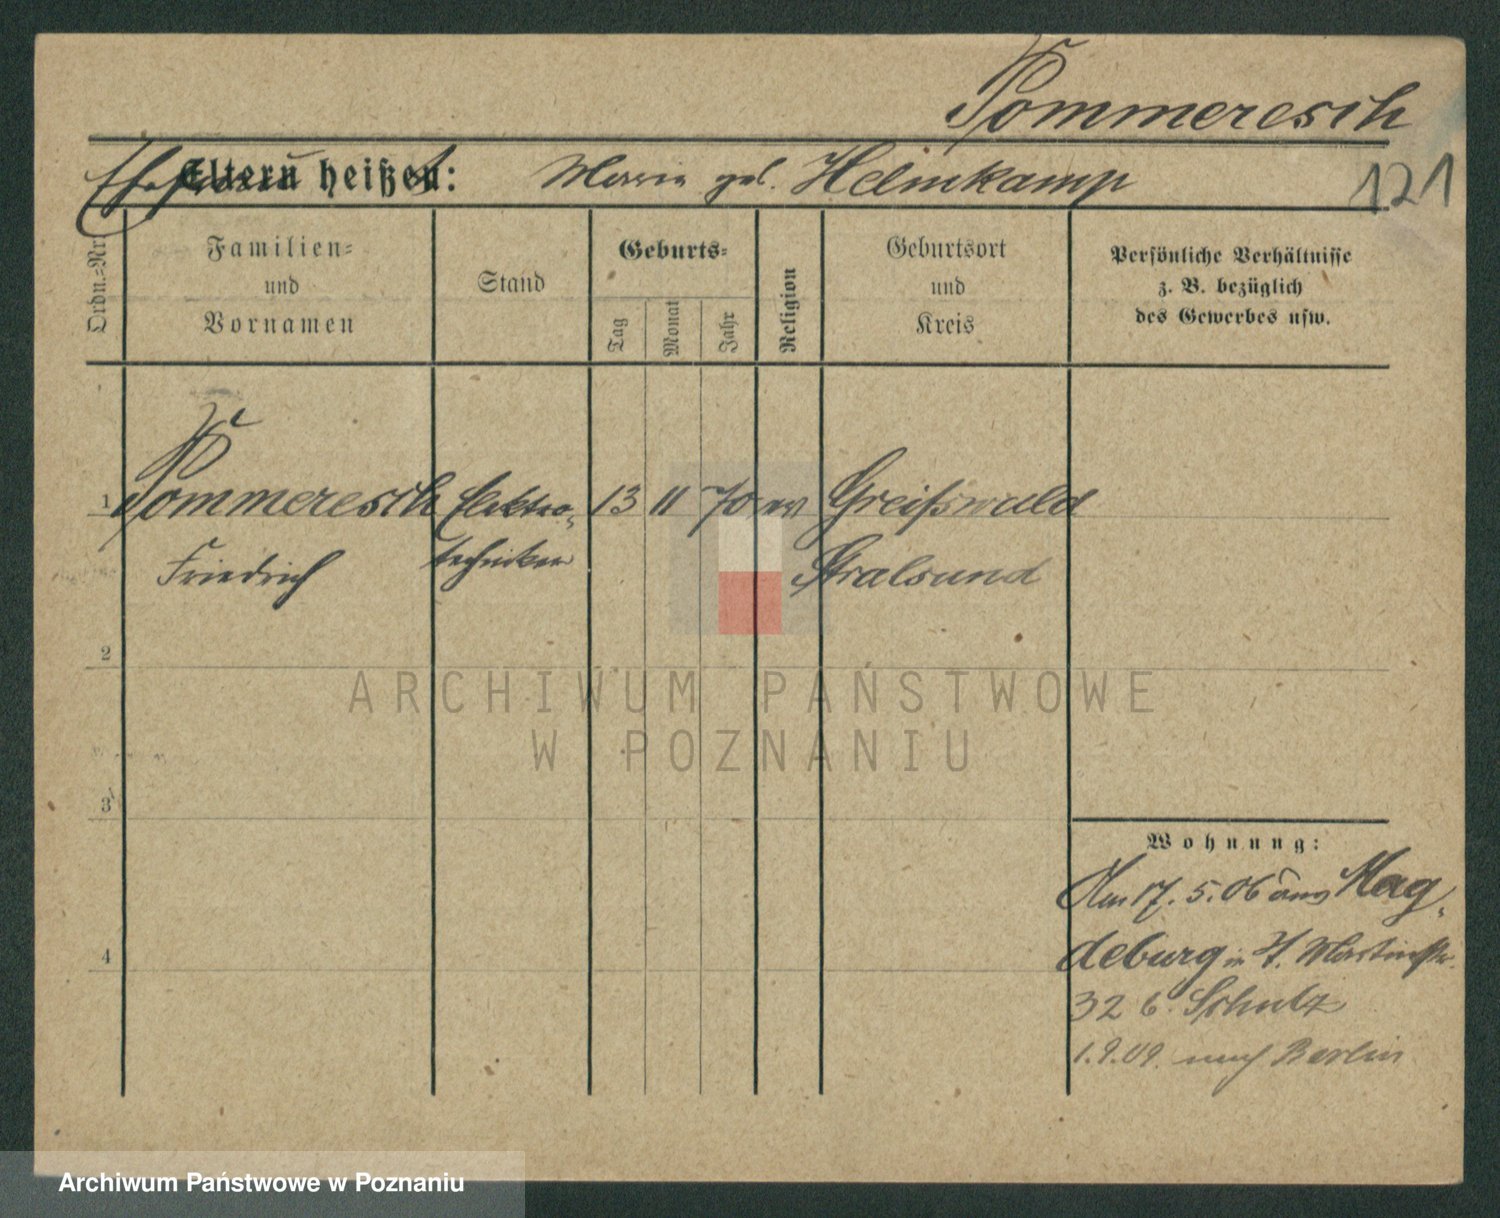 Pommeresch
Ehefrau heißt: Marie geb. Helmkamp
121
Ordn.-Nr.
Familien-
und
Vornamen
Stand
Geburts-
Tag
Monat
Jahr
Religion
Geburtsort
und
Kreis
Persönliche Verhältnisse
z. B. bezüglich
des Gewerbes usw.
1 Pommeresch Elektro- 13 11 70 ev Greifswald
Friedrich techniker Stralsund
2
3
4
Wohnung:
Am 17. 5. 06 aus Mag-
deburg in St. Martinstr.
32 b. Schulz
1.9.09. nach Berlin
ARCHIWUM PAŃSTWOWE
W POZNANIU
Archiwum Państwowe w Poznaniu